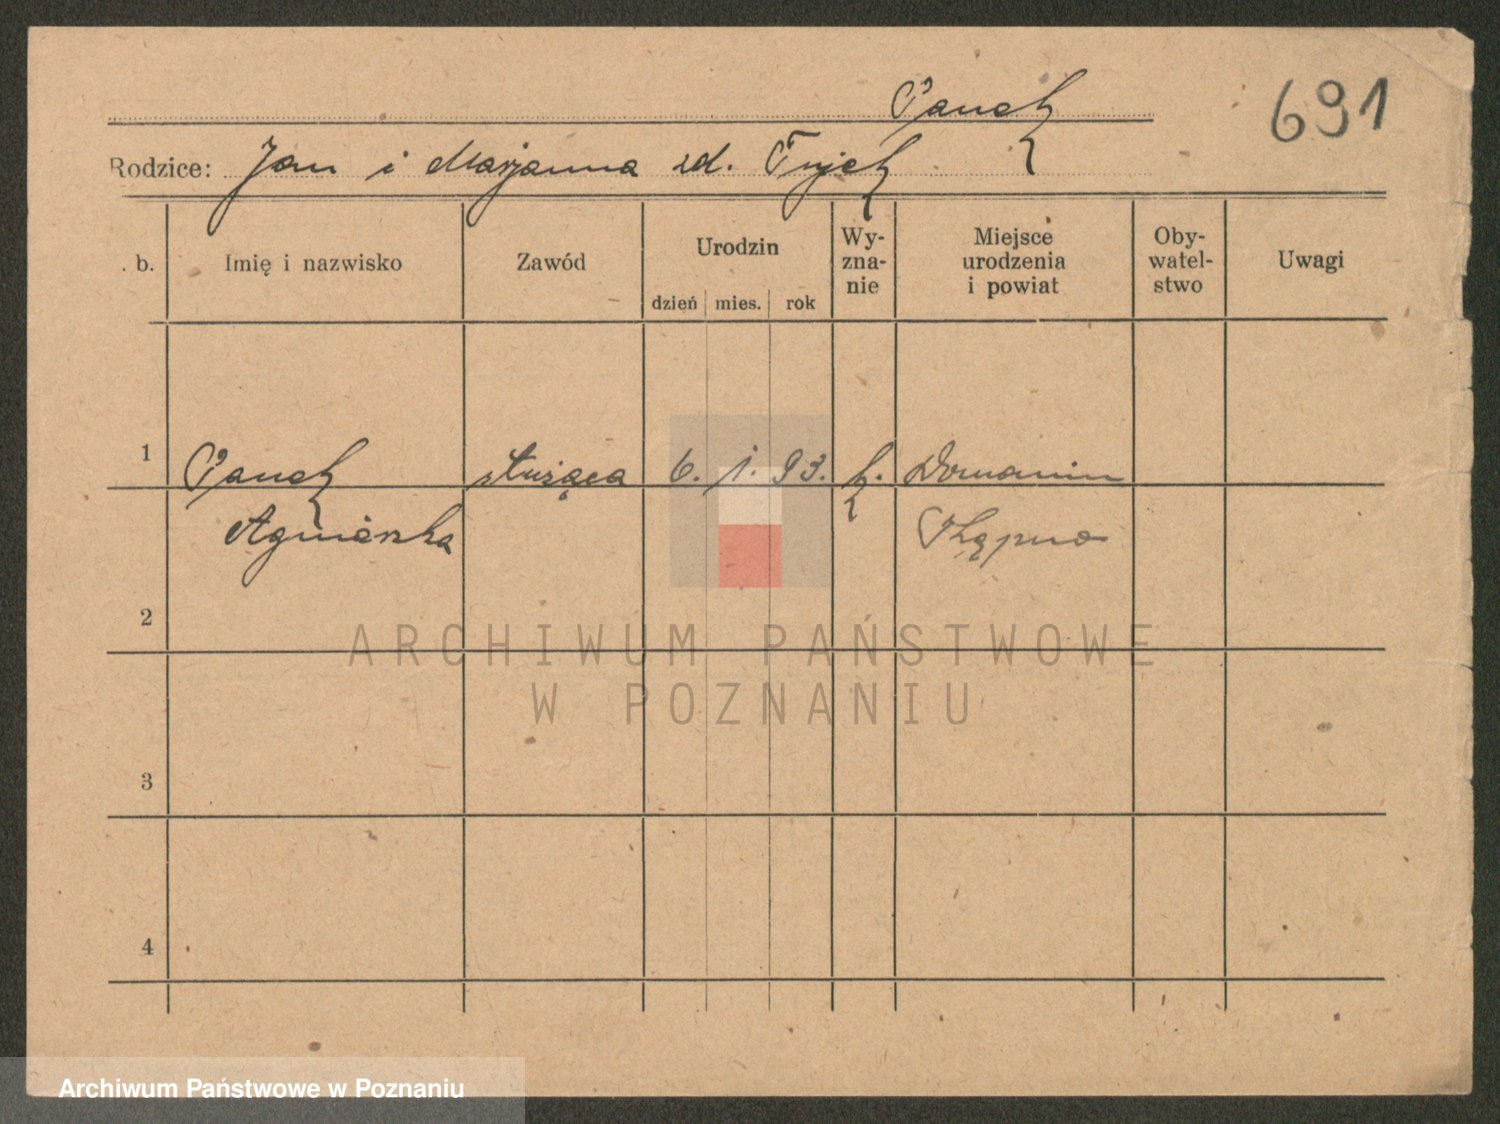 Panek
691
Rodzice: Jan i Marjanna zd. Fryck
. b.
Imię i nazwisko
Zawód
Urodzin
dzień mies. rok
Wy-
zna-
nie
Miejsce
urodzenia
i powiat
Oby-
watel-
stwo
Uwagi
1 Panek służąca 6. 1. 93. k. Domanin
Agnieszka Kępno
2
3
4
ARCHIWUM PAŃSTWOWE
W POZNANIU
Archiwum Państwowe w Poznaniu